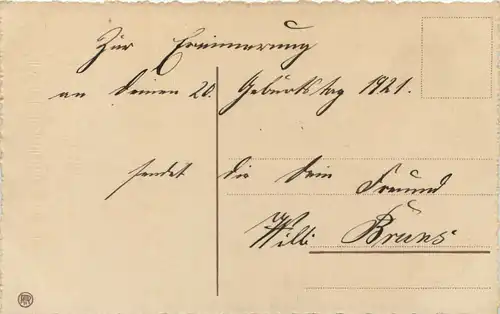 Zur Erinnerung
an Deinen 20. Geburtstag 1921.
sendet die Dein Freund
Willi Bruns